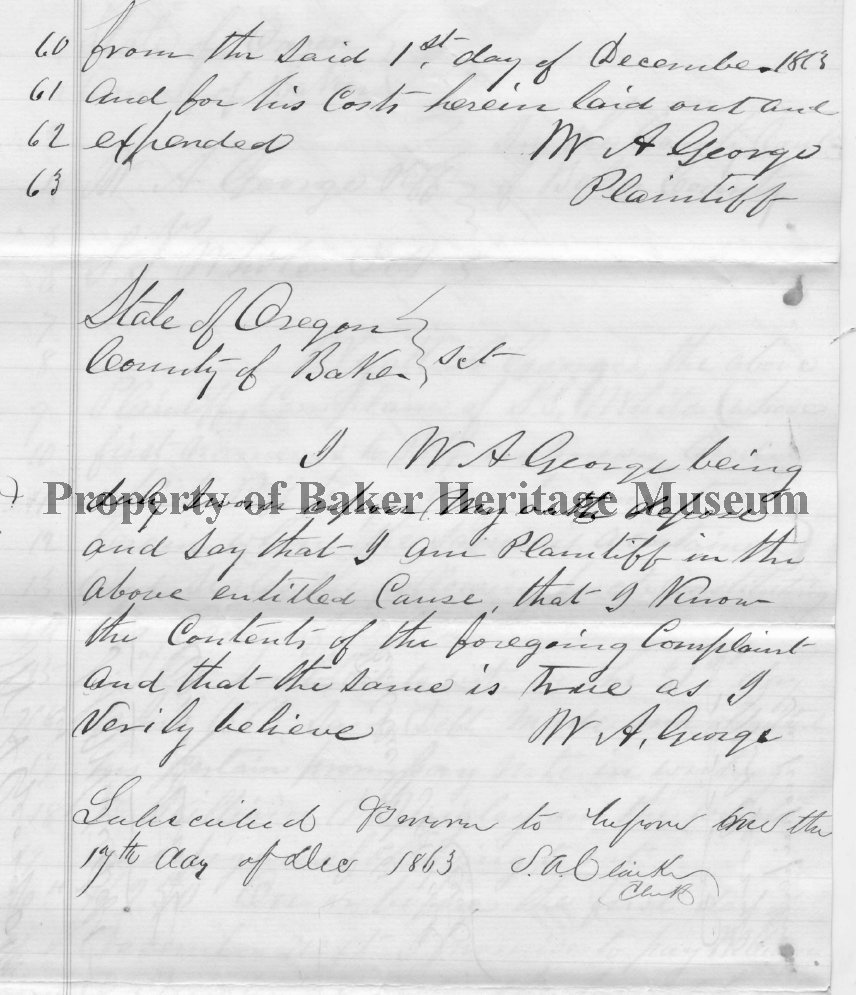 60 from the said 1st day of December 1863
61 and for his Costs herein laid out and
62 expended W A George
63 Plaintiff
State of Oregon
County of Baker } sct
I W A George being
duly sworn upon my oath depose
Property of Baker Heritage Museum
and say that I am Plaintiff in the
above entitled Cause, that I Know
the Contents of the foregoing Complaint
and that the same is true as I
Verily believe W A. George
Subscribed Sworn to before me the
17th day of Dec 1863 S. A. Clarke
Clerk